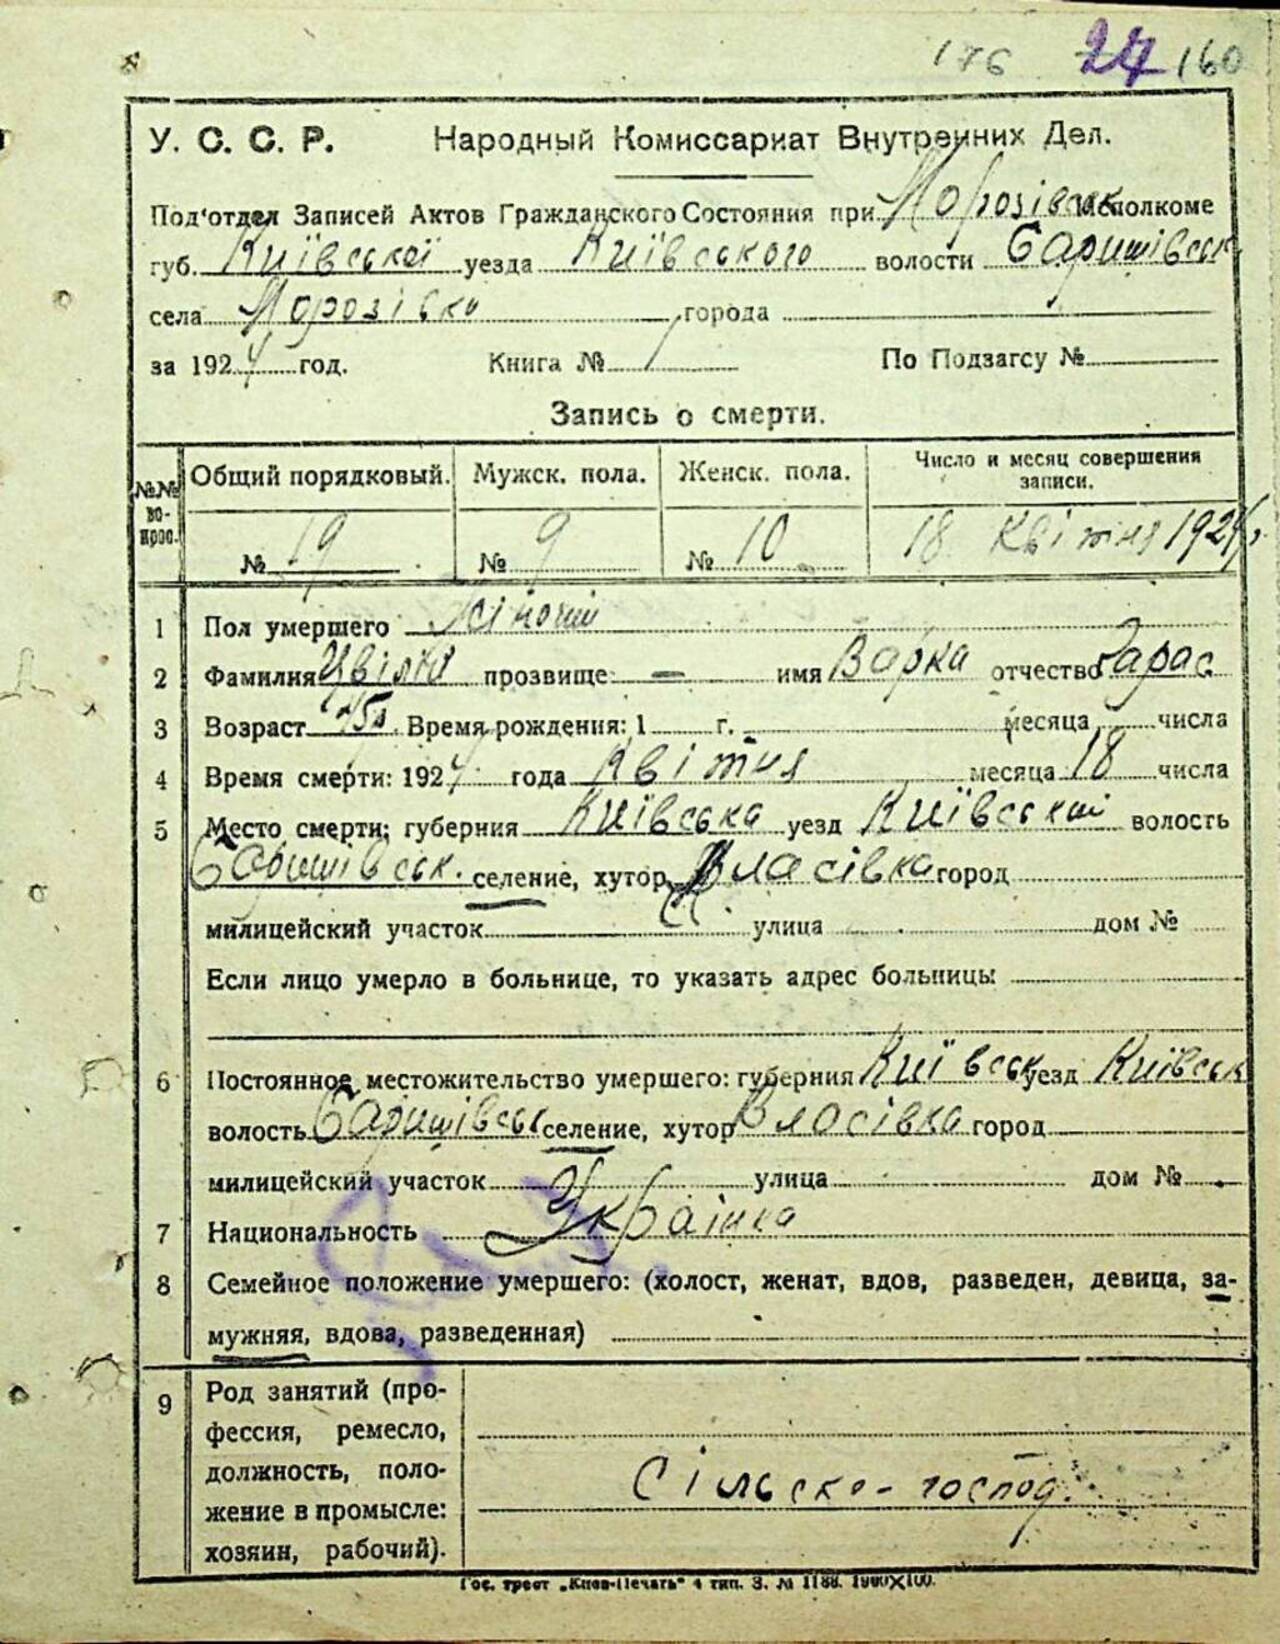 176 27 160
У. С. С. Р. Народный Комиссариат Внутренних Дел.
Под'отдел Записей Актов Гражданского Состояния при Морозівськ Исполкоме
губ. Київської уезда Київського волости Баришівськ
села Морозівки города
за 1924 год. Книга № 1 По Подзагсу №
Запись о смерти.
№№ вопрос. Общий порядковый. Мужск. пола. Женск. пола. Число и месяц совершения записи.
№ 19 № 9 № 10 18 Квітня 1924 г.
1 Пол умершего Жіночий
2 Фамилия прозвище: — имя Варка отчество Тарас
3 Возраст Время рождения: 1 г. месяца числа
4 Время смерти: 1924 года Квітня месяца 18 числа
5 Место смерти: губерния Київська уезд Київський волость
Баришівськ. селение, хутор Власівка город
милицейский участок улица дом №
Если лицо умерло в больнице, то указать адрес больницы:
6 Постоянное местожительство умершего: губерния Київськ уезд Київськ
волость Баришівськ селение, хутор Власівка город
милицейский участок улица дом №
7 Национальность Українка
8 Семейное положение умершего: (холост, женат, вдов, разведен, девица, за-
мужняя, вдова, разведенная)
9 Род занятий (про-
фессия, ремесло,
должность, поло-
жение в промысле: Сільско-господ.
хозяин, рабочий).
Гос. трест „Киев-Печать" 4 тип. З. № 1188. 1000×100.